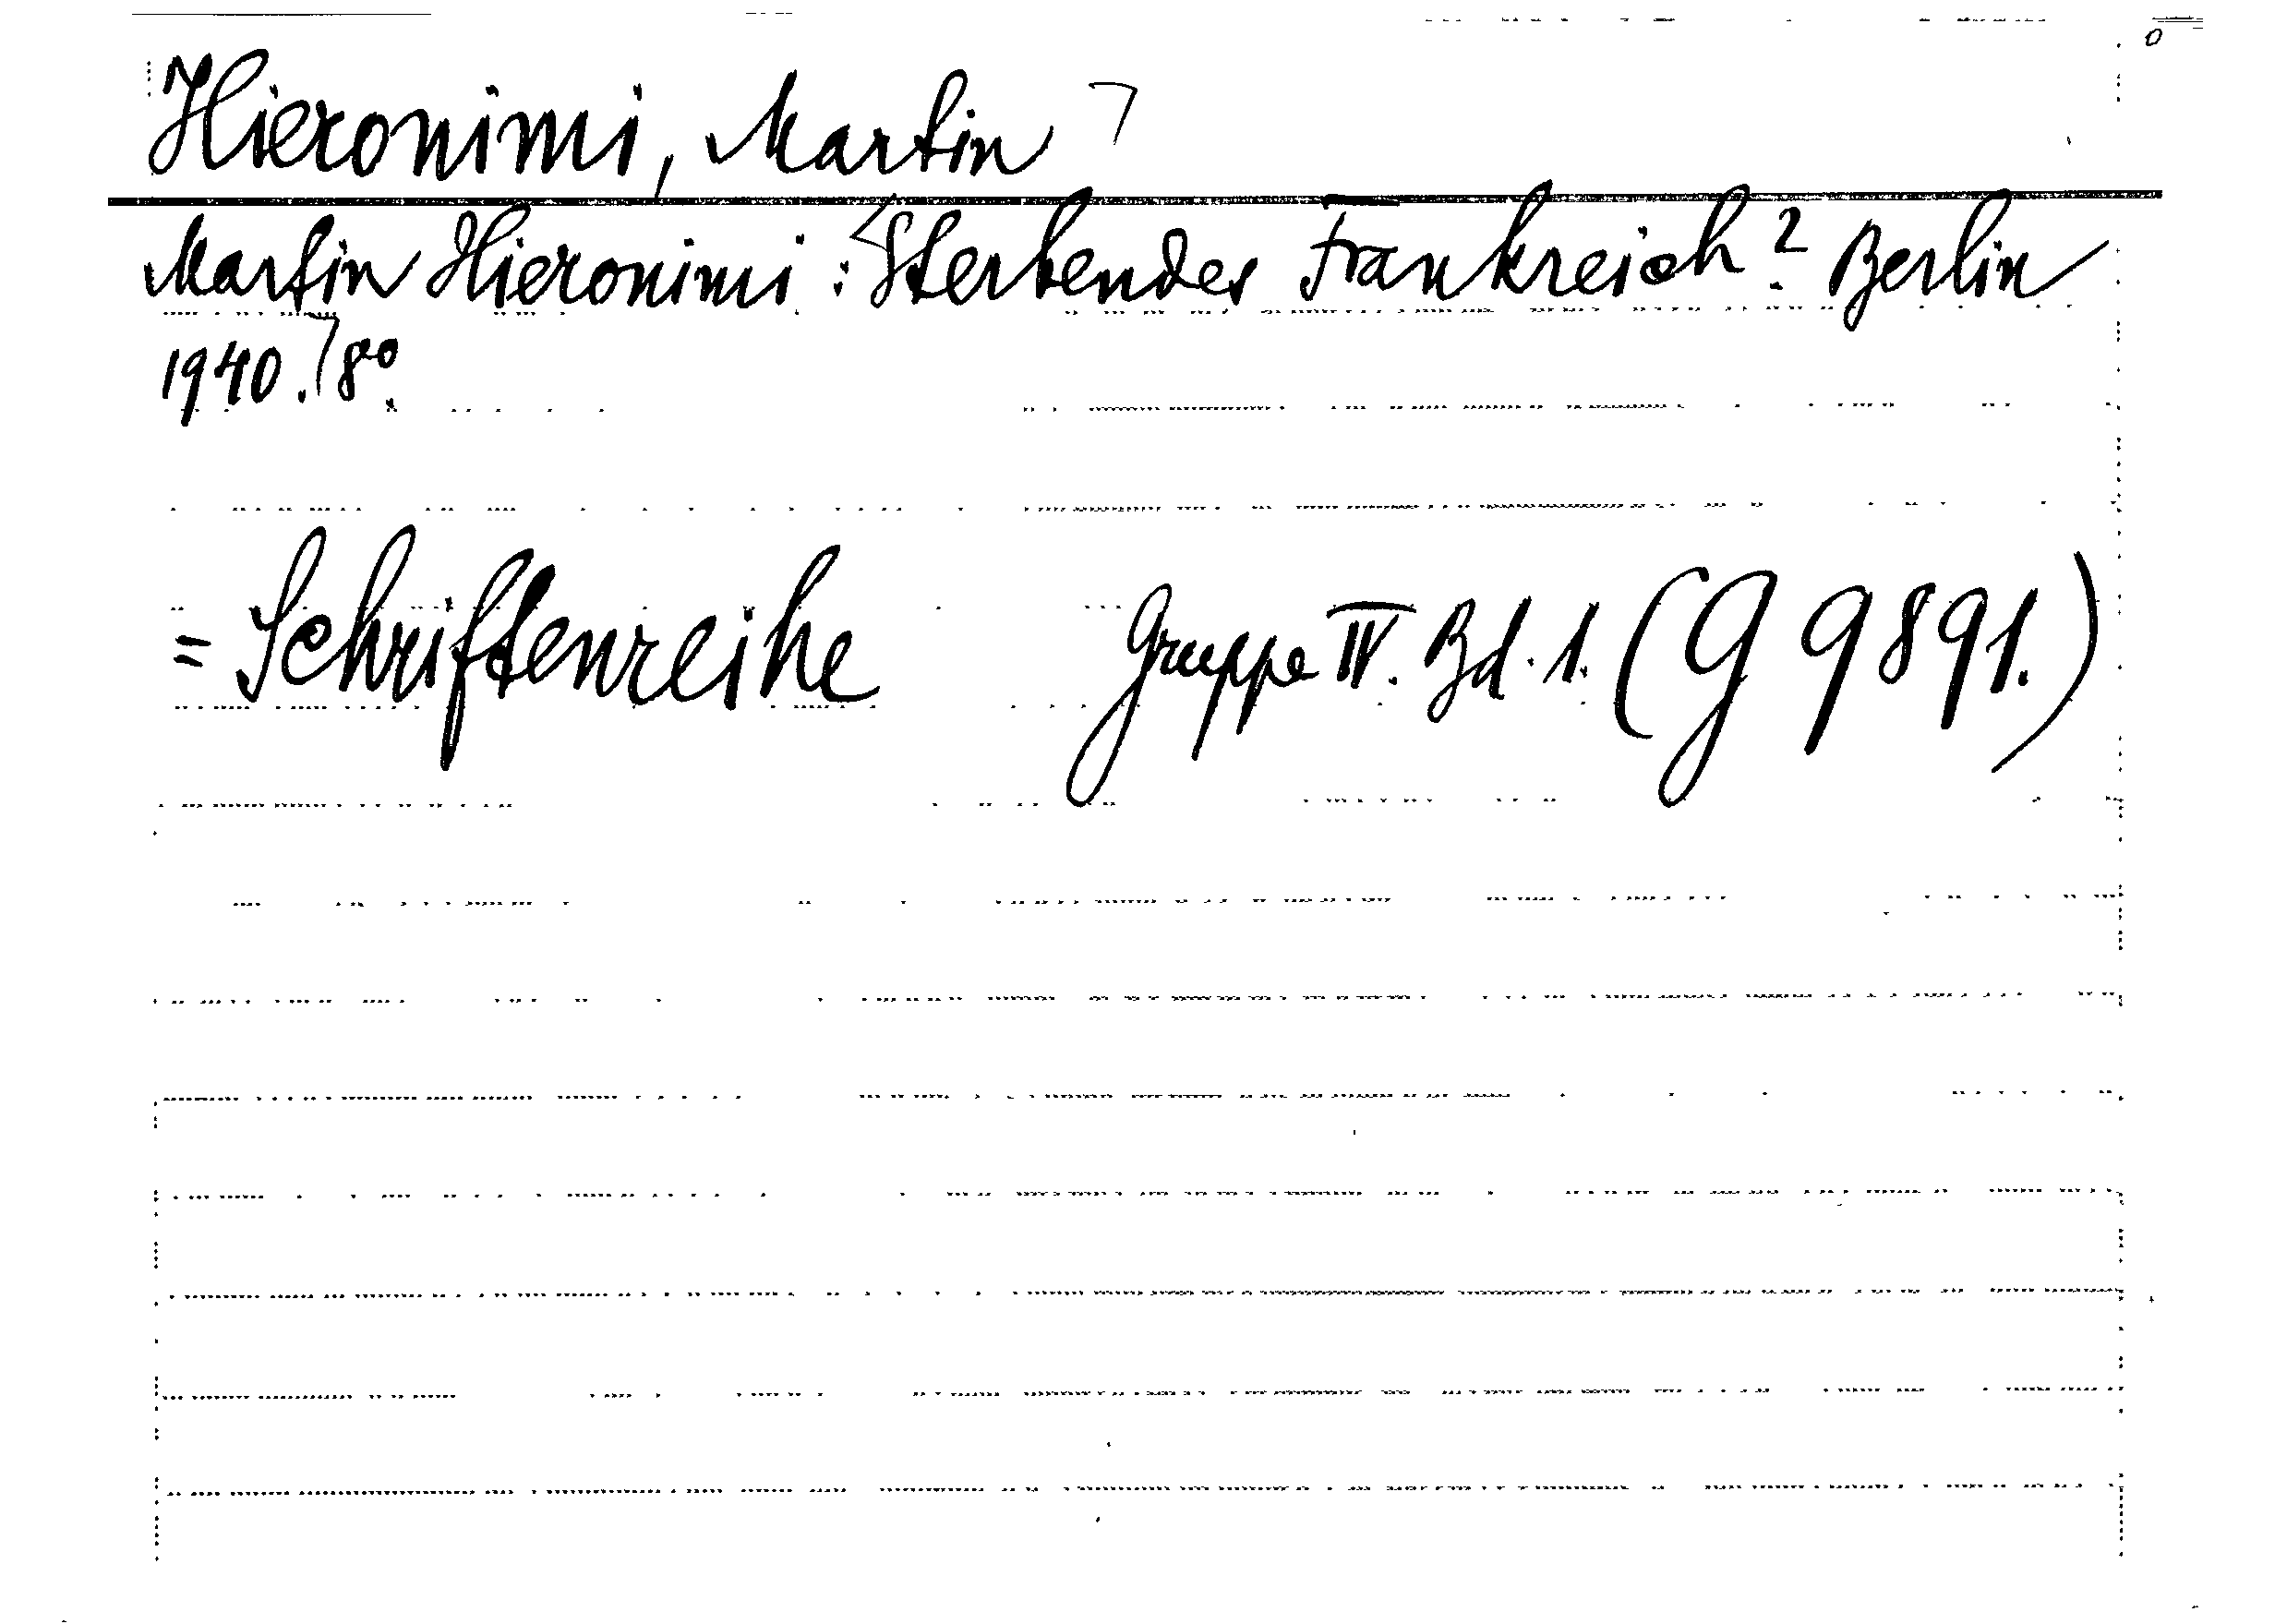 Hieronimi, Martin
Martin Hieronimi: Sterbendes Frankreich? Berlin
1940. 8°.
= Schriftenreihe Gruppe IV. Bd. 1. (G 9891.)